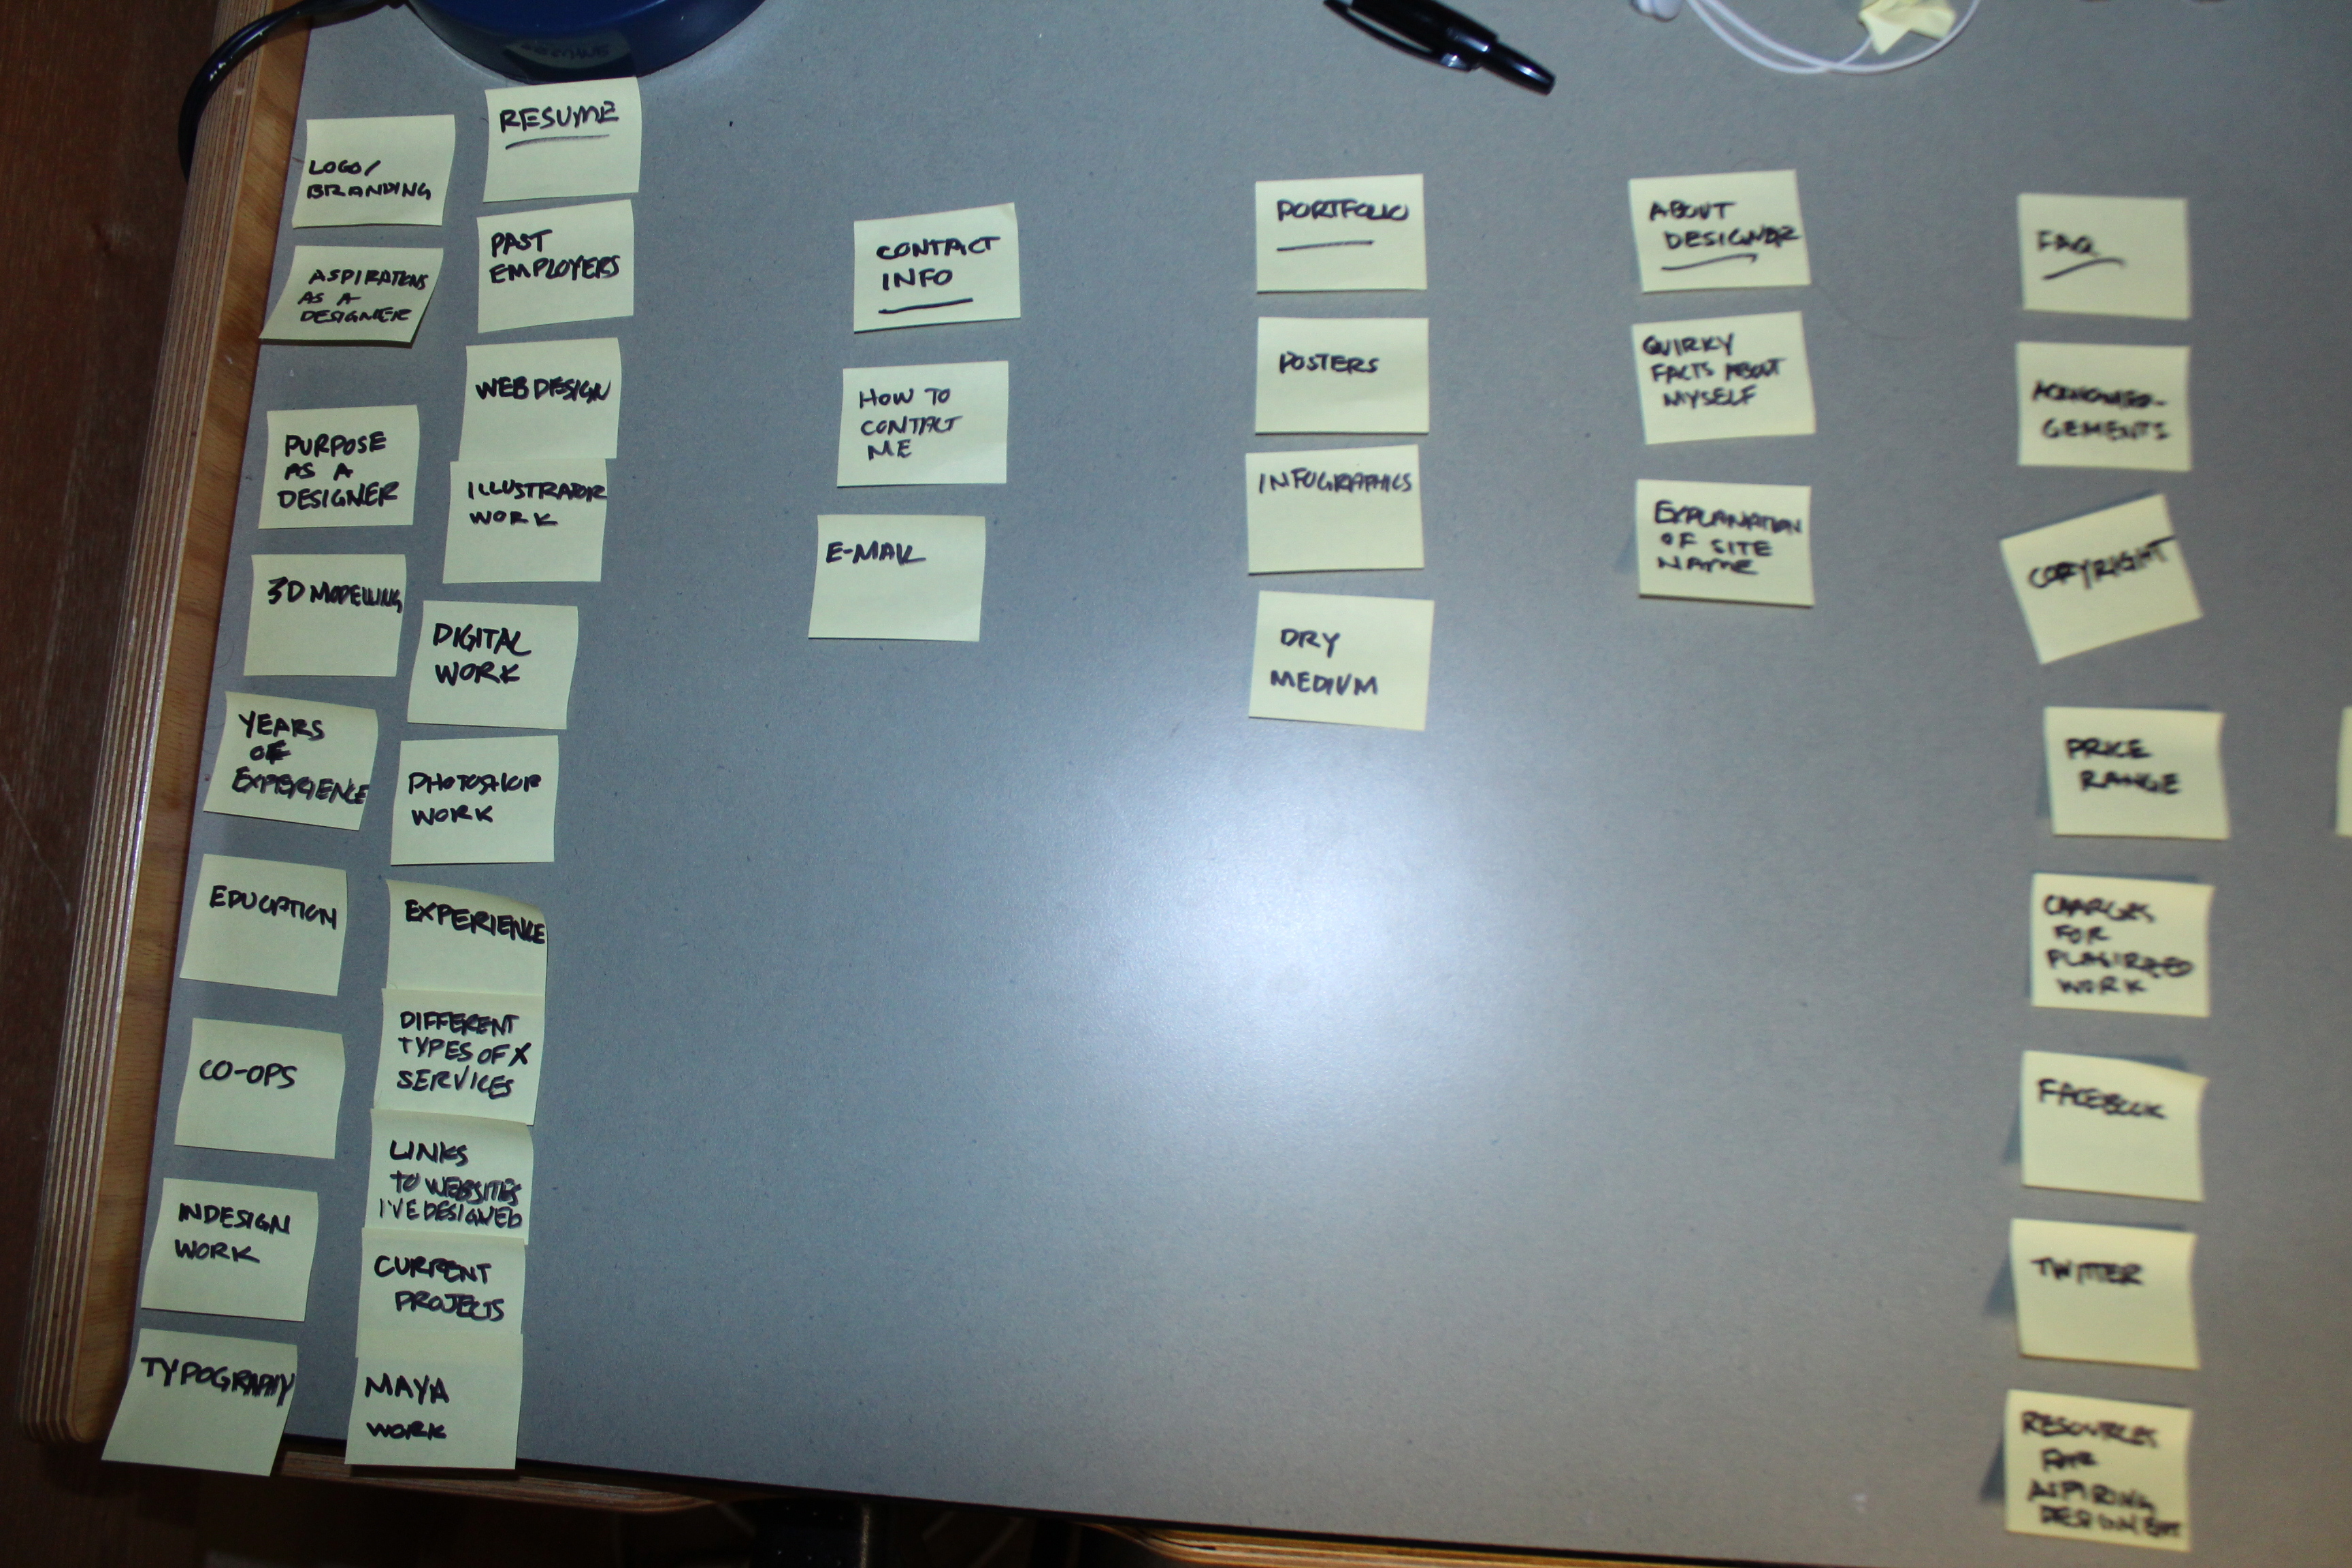 LOGO/
BRANDING
ASPIRATIONS
AS A
DESIGNER
PURPOSE
AS A
DESIGNER
3D MODELLING
YEARS
OF
EXPERIENCE
EDUCATION
CO-OPS
INDESIGN
WORK
TYPOGRAPHY
RESUME
PAST
EMPLOYERS
WEB DESIGN
ILLUSTRATOR
WORK
DIGITAL
WORK
PHOTOSHOP
WORK
EXPERIENCE
DIFFERENT
TYPES OF X
SERVICES
LINKS
TO WEBSITES
I'VE DESIGNED
CURRENT
PROJECTS
MAYA
WORK
CONTACT
INFO
HOW TO
CONTACT
ME
E-MAIL
PORTFOLIO
POSTERS
INFOGRAPHICS
DRY
MEDIUM
ABOUT
DESIGNER
QUIRKY
FACTS ABOUT
MYSELF
EXPLANATION
OF SITE
NAME
FAQ
GEMENTS
COPYRIGHT
PRICE
RANGE
CHARGES
FOR
WORK
FACEBOOK
TWITTER
RESOURCES
FOR
ASPIRING